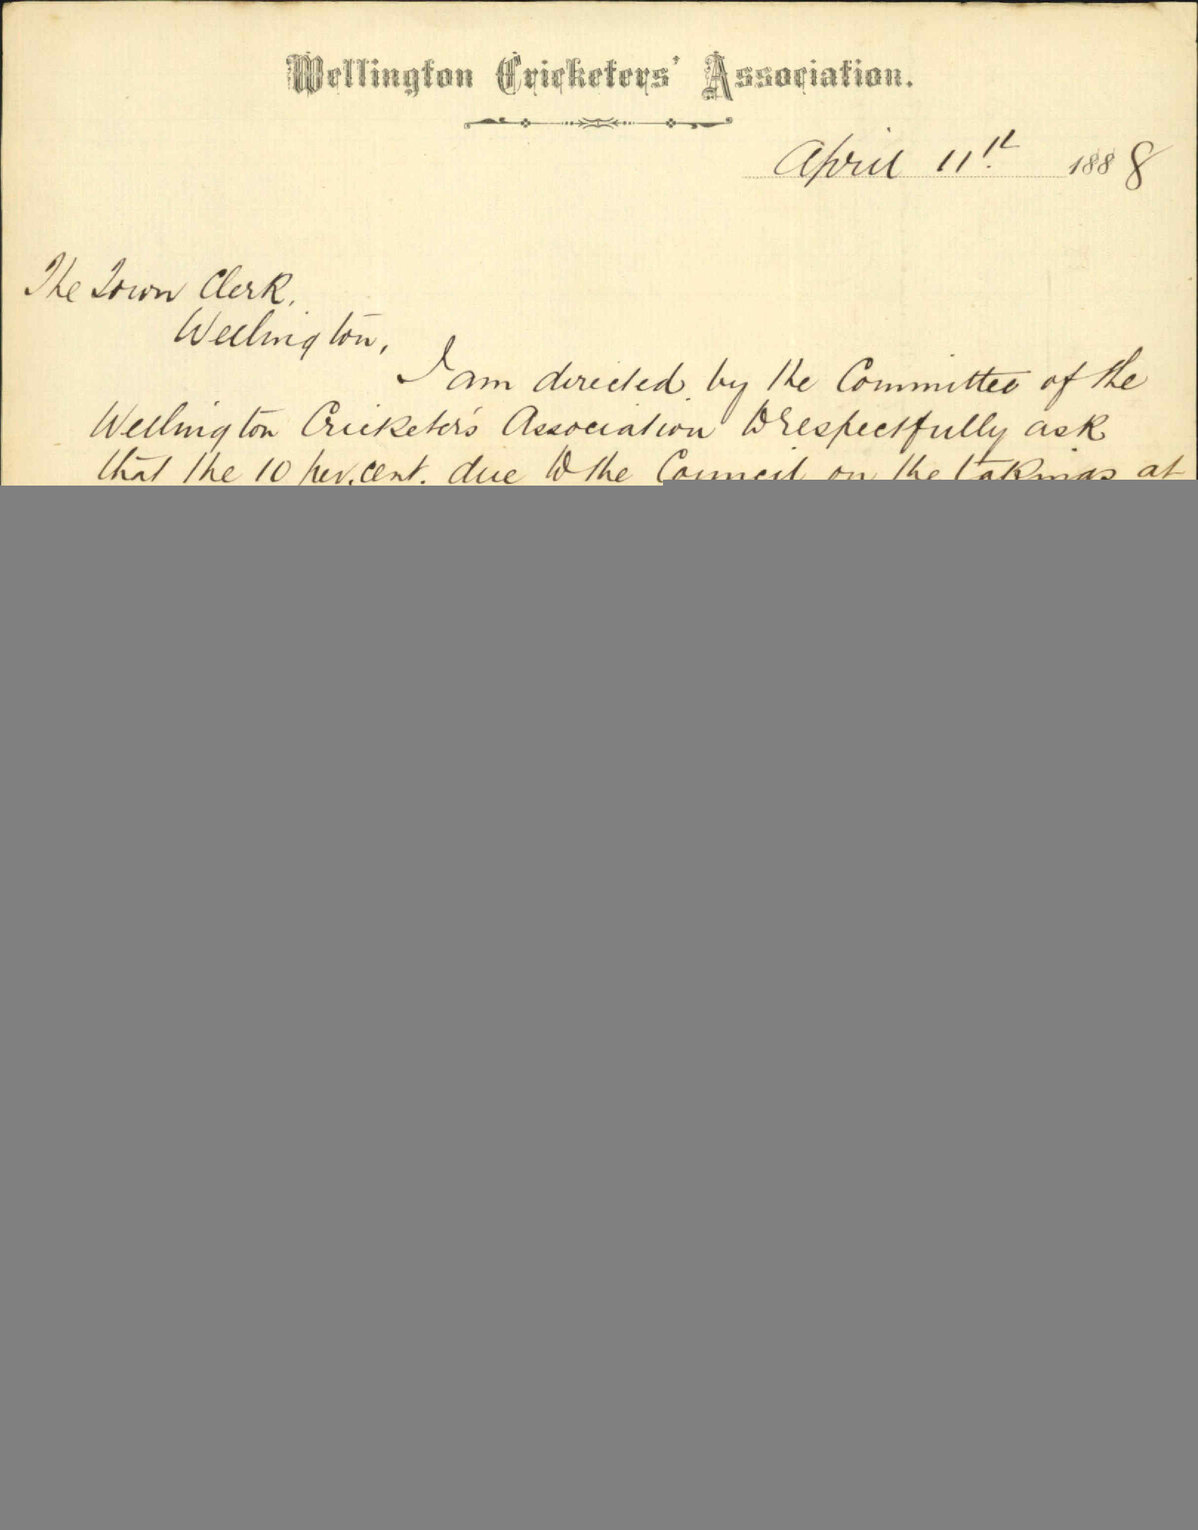 Wellington Cricketers' Association.
April 11th 1888
The Town Clerk,
Wellington,
I am directed by the Committee of the
Wellington Cricketer's Association to respectfully ask
that the 10 per. cent. due to the Council on the takings at